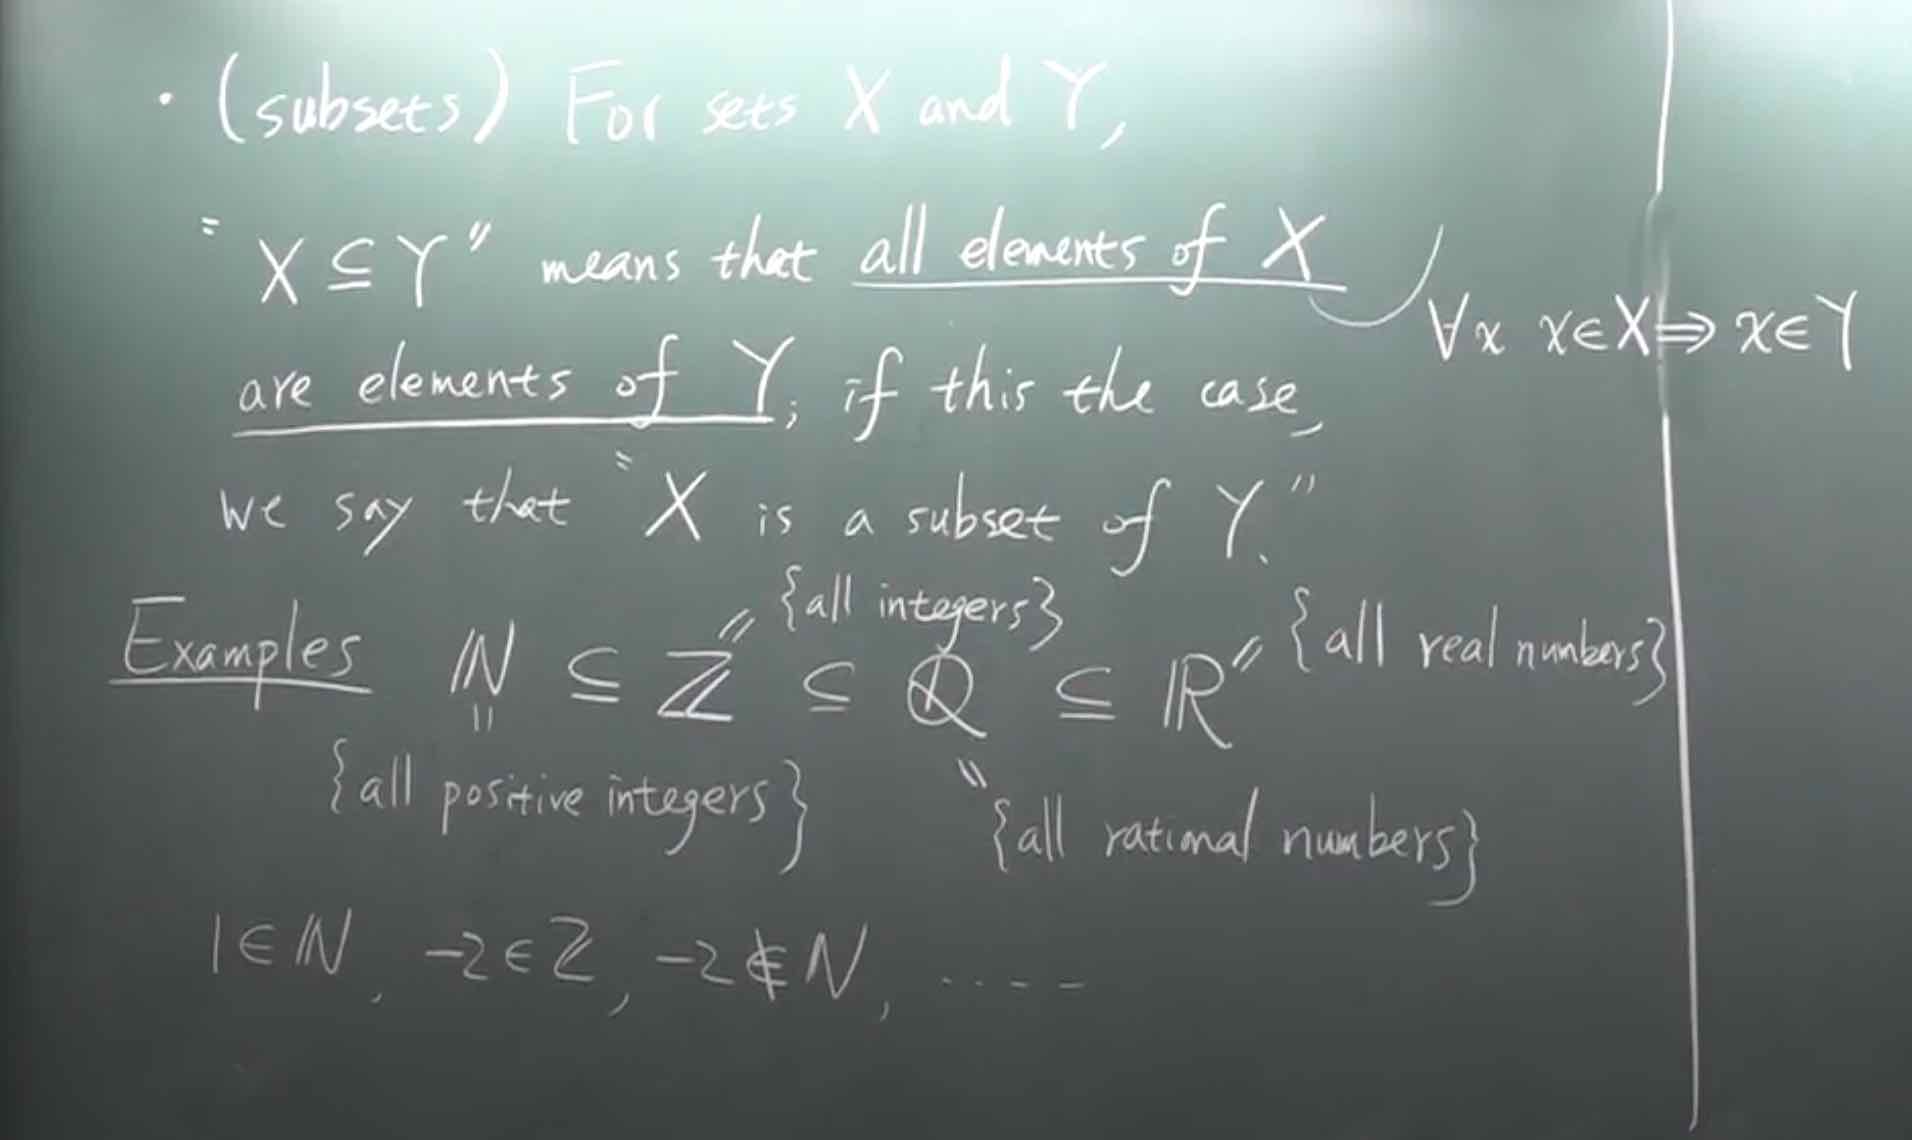 · (subsets) For sets X and Y,
"X ⊆ Y" means that all elements of X
∀x x∈X ⇒ x∈Y
are elements of Y; if this the case,
we say that "X is a subset of Y."
{all integers}
{all real numbers}
Examples ℕ ⊆ ℤ ⊆ ℚ ⊆ ℝ
{all positive integers}
{all rational numbers}
1∈ℕ, -2∈ℤ, -2∉ℕ, ....